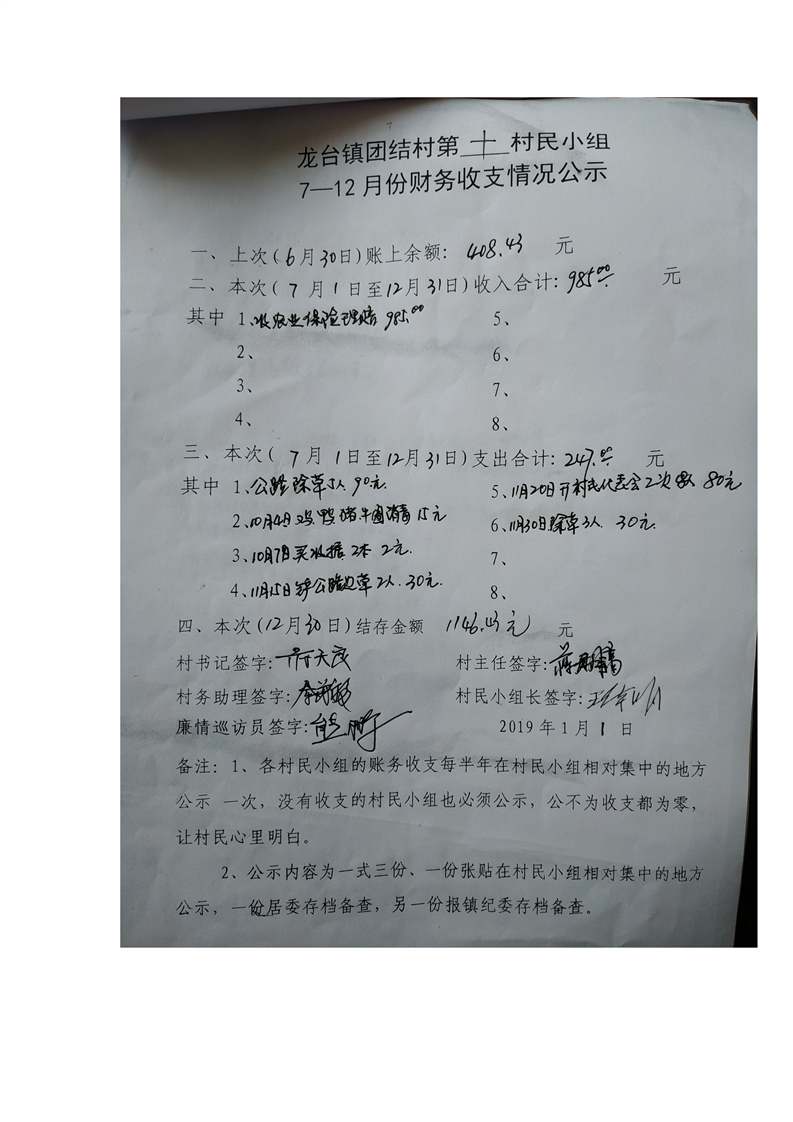 龙台镇团结村第 十 村民小组
7—12月份财务收支情况公示
一、上次(6月30日)账上余额: 408.43 元
二、本次(7月1日至12月31日)收入合计: 985.00 元
其中 1、收农业保险理赔 985.00 5、
2、 6、
3、 7、
4、 8、
三、本次(7月1日至12月31日)支出合计: 247.00 元
其中 1、公路除草 90元. 5、11月20日开村民代表会2次 80元
2、10月4日鸡.鸭.猪.牛圈消毒 15元 6、11月30日除草3人. 30元.
3、10月7日买收据 2本 2元. 7、
4、11月15日铲公路边草2人. 30元. 8、
四、本次(12月30日)结存金额 1146.43元 元
村书记签字: 村主任签字:
村务助理签字: 村民小组长签字:
廉情巡访员签字: 2019年1月1日
备注:1、各村民小组的账务收支每半年在村民小组相对集中的地方
公示 一次,没有收支的村民小组也必须公示,公不为收支都为零,
让村民心里明白。
2、公示内容为一式三份、一份张贴在村民小组相对集中的地方
公示,一份居委存档备查,另一份报镇纪委存档备查。